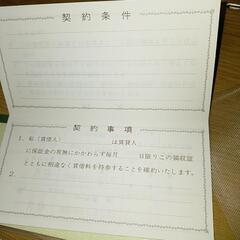 契約条件
契約事項
1、私（賃借人）　　　　は賃貸人
に保証金の有無にかかわらず毎月　　日限りこの領収証
とともに相違なく賃借料を持参することを確約いたします。
2、